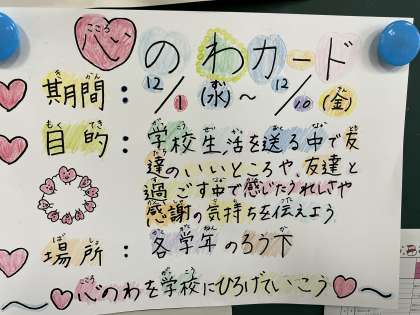 心のわカード
期間：12/1(水)～12/10(金)
目的：学校生活を送る中で友
達のいいところや、友達と
過ごす中で感じたうれしさや
感謝の気持ちを伝えよう
場所：各学年のろう下
～♡心のわを学校にひろげていこう♡～